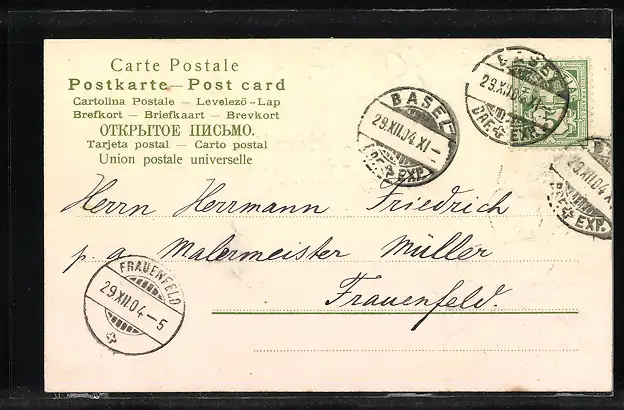 Carte Postale
Postkarte — Post card
Cartolina Postale — Levelező-Lap
Brefkort — Briefkaart — Brevkort
ОТКРЫТОЕ ПИСЬМО.
Tarjeta postal — Carto postal
Union postale universelle
BASEL
29.XII.04.XI–
BRF. EXP.
BASEL
29.XII.04.XI
BRF. EXP.
29.XII.04.X
EXP.
Herrn Herrmann Friedrich
p. a. Malermeister Müller
Frauenfeld.
FRAUENFELD
29.XII.04–5